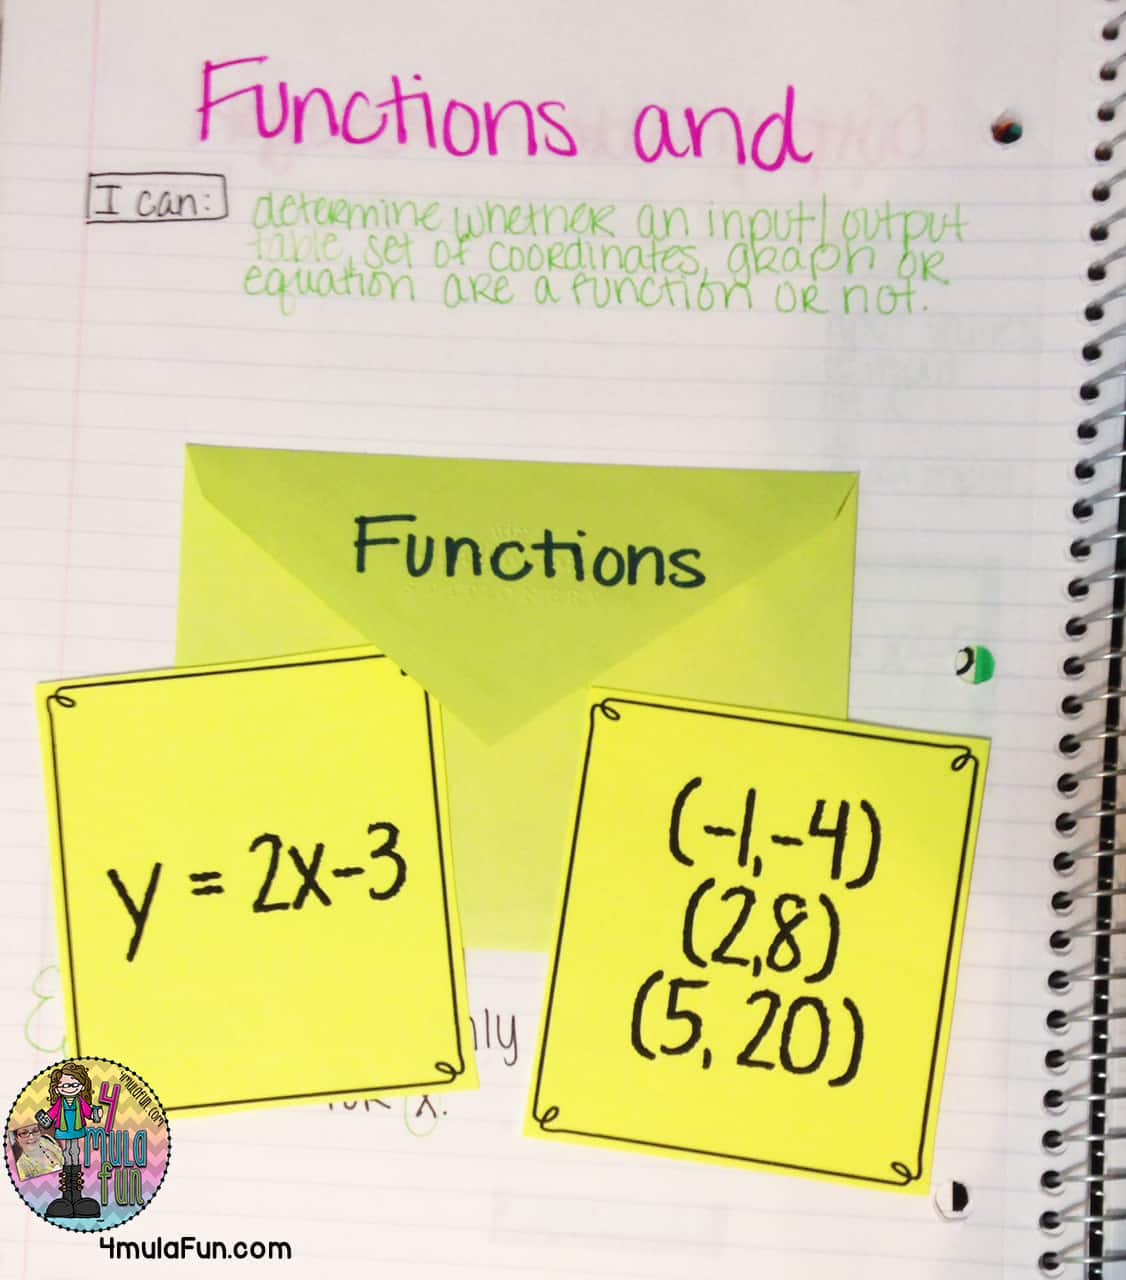 Functions and
I can:
determine whether an input/output
table, set of coordinates, graph or
equation are a function or not.
Functions
y = 2x-3
(-1,-4)
(2,8)
(5, 20)
x.
4mulaFun.com
4
mula
fun
4mulaFun.com